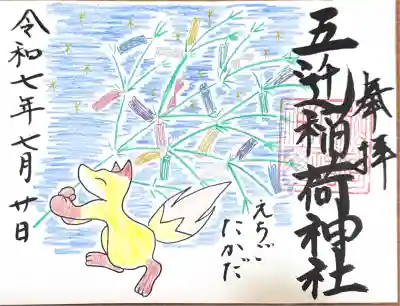 奉拝
五辻稲荷神社
えちご
たかだ
令和七年七月廿日